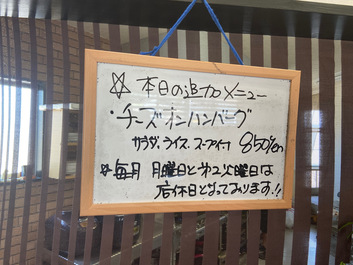 ☆ 本日の追加メニュー
・チーズオンハンバーグ
サラダ、ライス、スープ付 850yen
☆毎月 月曜日と第2火曜日は
店休日となっております!!